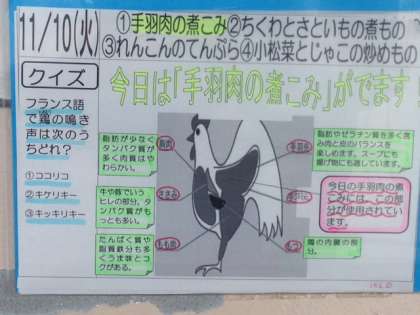 11/10(火)
①手羽肉の煮こみ②ちくわとさといもの煮もの
③れんこんのてんぷら④小松菜とじゃこの炒めもの
今日は「手羽肉の煮こみ」がでます
クイズ
フランス語
で鶏の鳴き
声は次のう
ちどれ?
①ココリコ
②キケリキー
③キッキリキー
脂肪が少なく
タンパク質が
多く肉質はや
わらかい。
胸肉
牛や豚でいう
ヒレの部分。タ
ンパク質がも
っとも多い。
ささみ
たんぱく質や
脂質鉄分も多
くうま味とコ
クがある。
もも肉
脂肪やゼラチン質を多く含
み肉と皮のバランスを
楽しめます。スープにも
揚げ物にも適しています。
今日の手羽肉の煮
こみには、この部
分が使用されてい
ます。
鶏の内臓の部分。